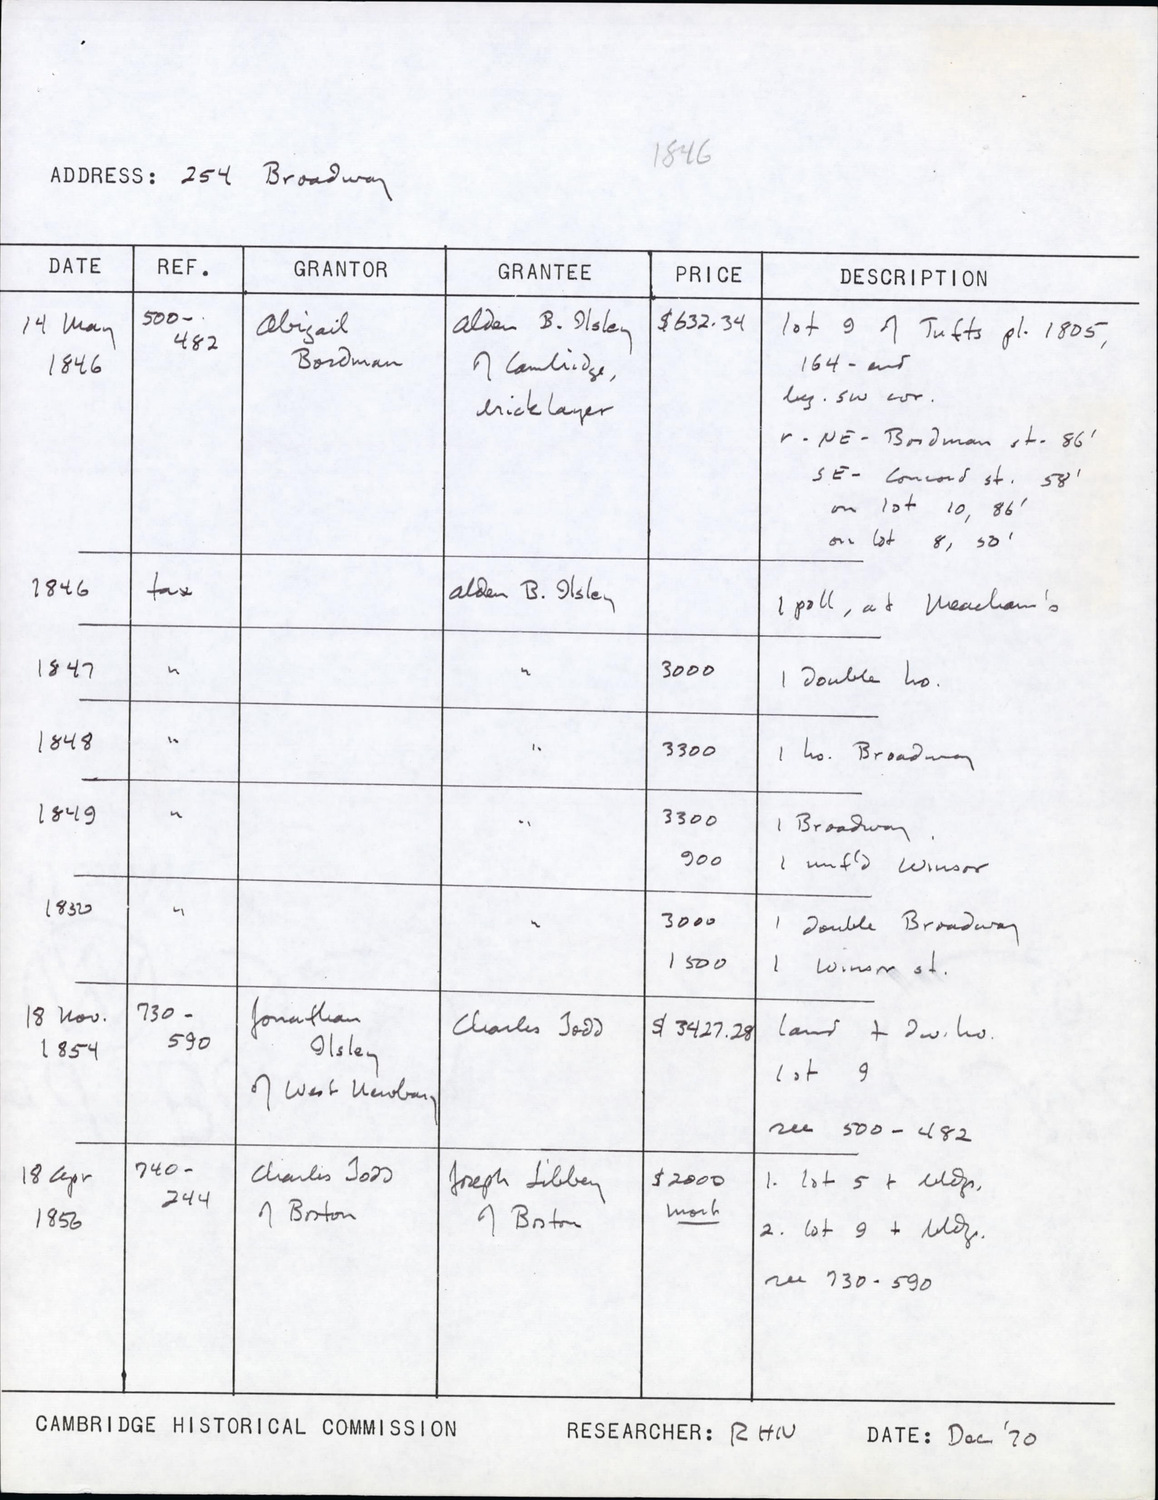 1846
ADDRESS: 254 Broadway
DATE REF. GRANTOR GRANTEE PRICE DESCRIPTION
14 May 500- Abigail Alden B. Ilsley $632.34 lot 9 of Tufts pl. 1805,
1846 482 Bordman of Cambridge, 164- end
bricklayer beg. SW cor.
r - NE - Bordman st. 86'
SE - Concord st. 58'
on lot 10, 86'
on lot 8, 50'
1846 tax Alden B. Ilsley 1 poll, at Meacham's
1847 " " 3000 1 double ho.
1848 " " 3300 1 ho. Broadway
1849 " " 3300 1 Broadway
900 1 unf'd Winsor
1850 " " 3000 1 double Broadway
1500 1 Winsor st.
18 Nov. 730- Jonathan Charles Todd $3427.28 land + dw. ho.
1854 590 Ilsley lot 9
of West Newbury
see 500-482
18 Apr 740- Charles Todd Joseph Libbey $2000 1. lot 5 + bldgs.
1856 244 of Boston of Boston mort 2. lot 9 + bldgs.
see 730-590
CAMBRIDGE HISTORICAL COMMISSION RESEARCHER: RHN DATE: Dec '70